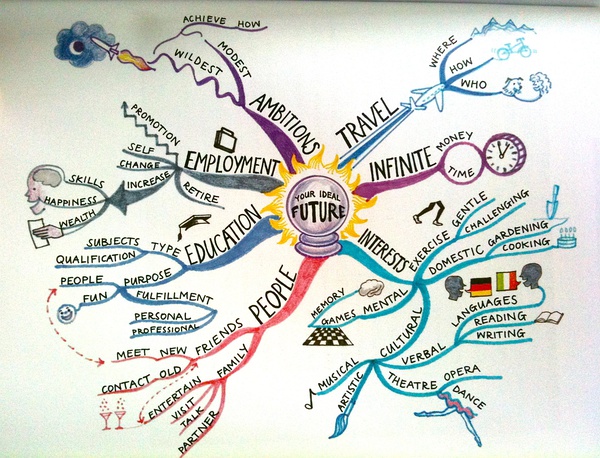 YOUR IDEAL
FUTURE
TRAVEL
WHERE
HOW
WHO
INFINITE
MONEY
TIME
INTERESTS
EXERCISE
GENTLE
CHALLENGING
DOMESTIC
GARDENING
COOKING
MENTAL
MEMORY
GAMES
CULTURAL
VERBAL
LANGUAGES
READING
WRITING
THEATRE
OPERA
DANCE
MUSICAL
ARTISTIC
PEOPLE
FRIENDS
NEW
MEET
OLD
CONTACT
FAMILY
ENTERTAIN
VISIT
TALK
PARTNER
EDUCATION
TYPE
SUBJECTS
QUALIFICATION
PURPOSE
PEOPLE
FUN
FULFILLMENT
PERSONAL
PROFESSIONAL
EMPLOYMENT
PROMOTION
SELF
CHANGE
INCREASE
SKILLS
HAPPINESS
WEALTH
RETIRE
AMBITIONS
MODEST
WILDEST
ACHIEVE HOW